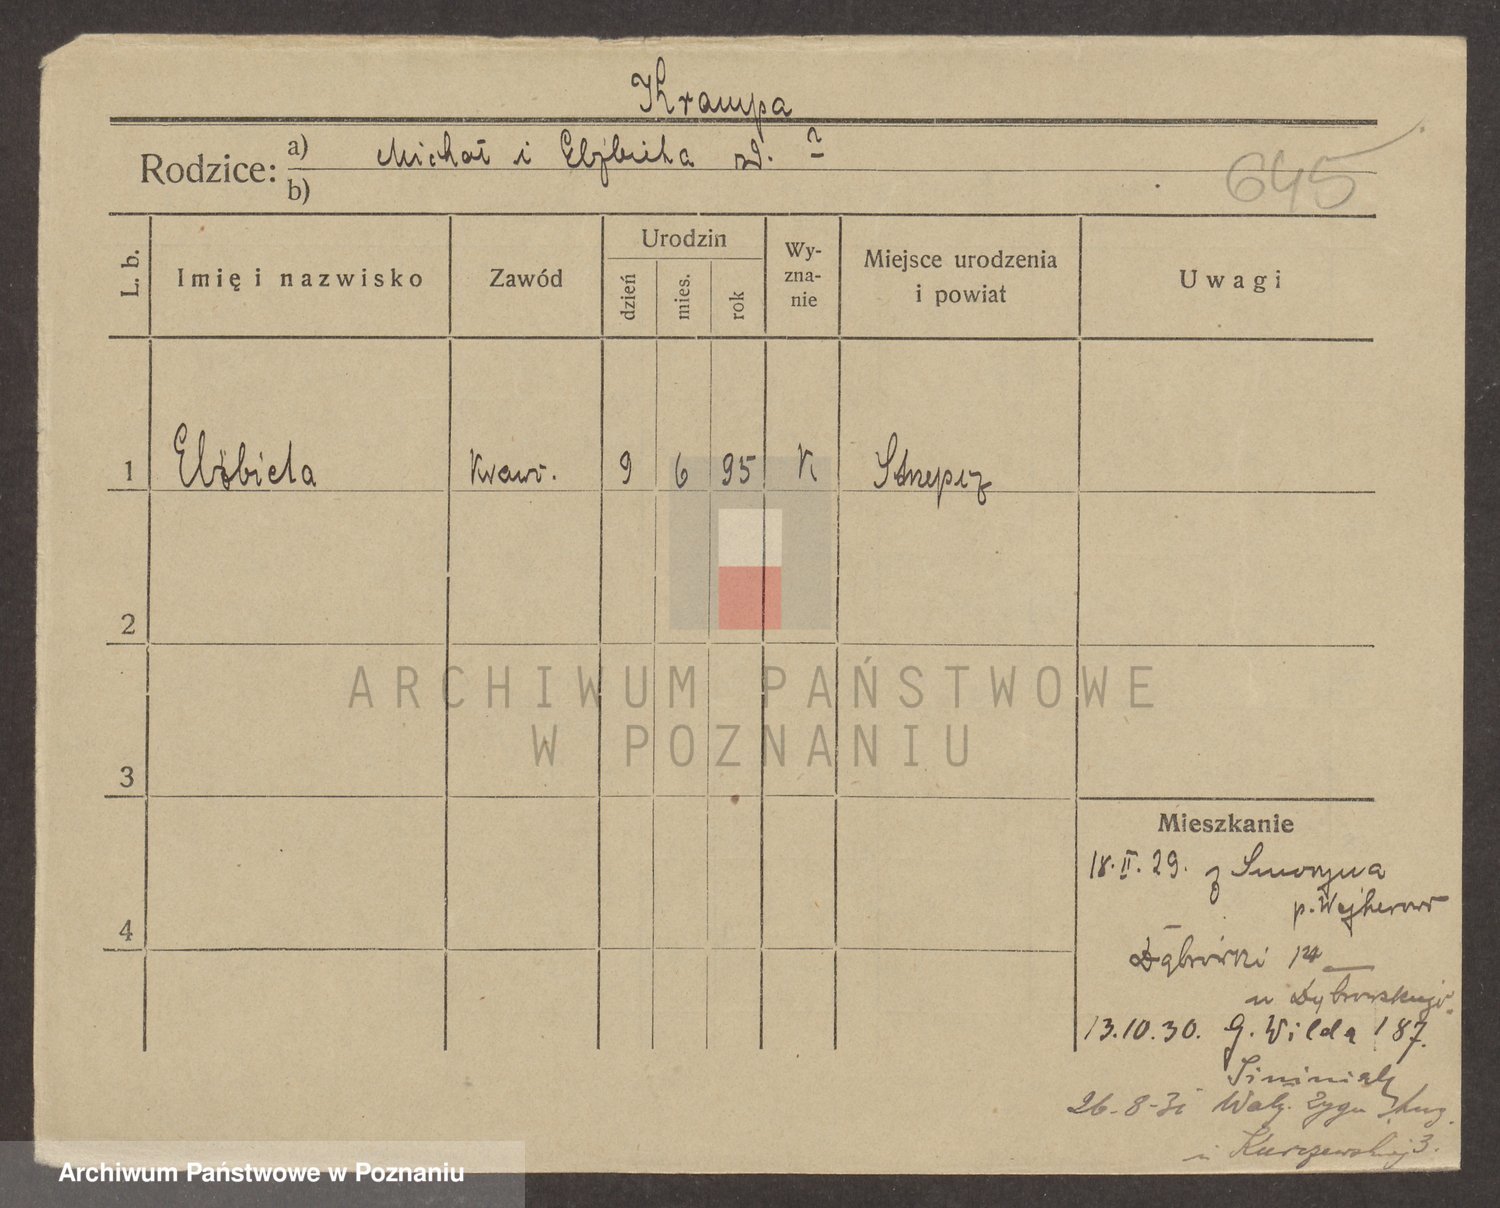 Krampa
Rodzice: a) Michał i Elżbieta zd. ?
b)
645
L. b.
Imię i nazwisko
Zawód
Urodzin
dzień
mies.
rok
Wy-
zna-
nie
Miejsce urodzenia
i powiat
Uwagi
1 Elżbieta kraw. 9 6 95 K Strzepcz
2
3
4
Mieszkanie
18.II.29. z
p. Wejherowo
Dąbrówki 14
u Dąbrowskiego
13.10.30. G. Wilda 187.
26-8-31
u Kurzewskiej 3.
ARCHIWUM PAŃSTWOWE
W POZNANIU
Archiwum Państwowe w Poznaniu